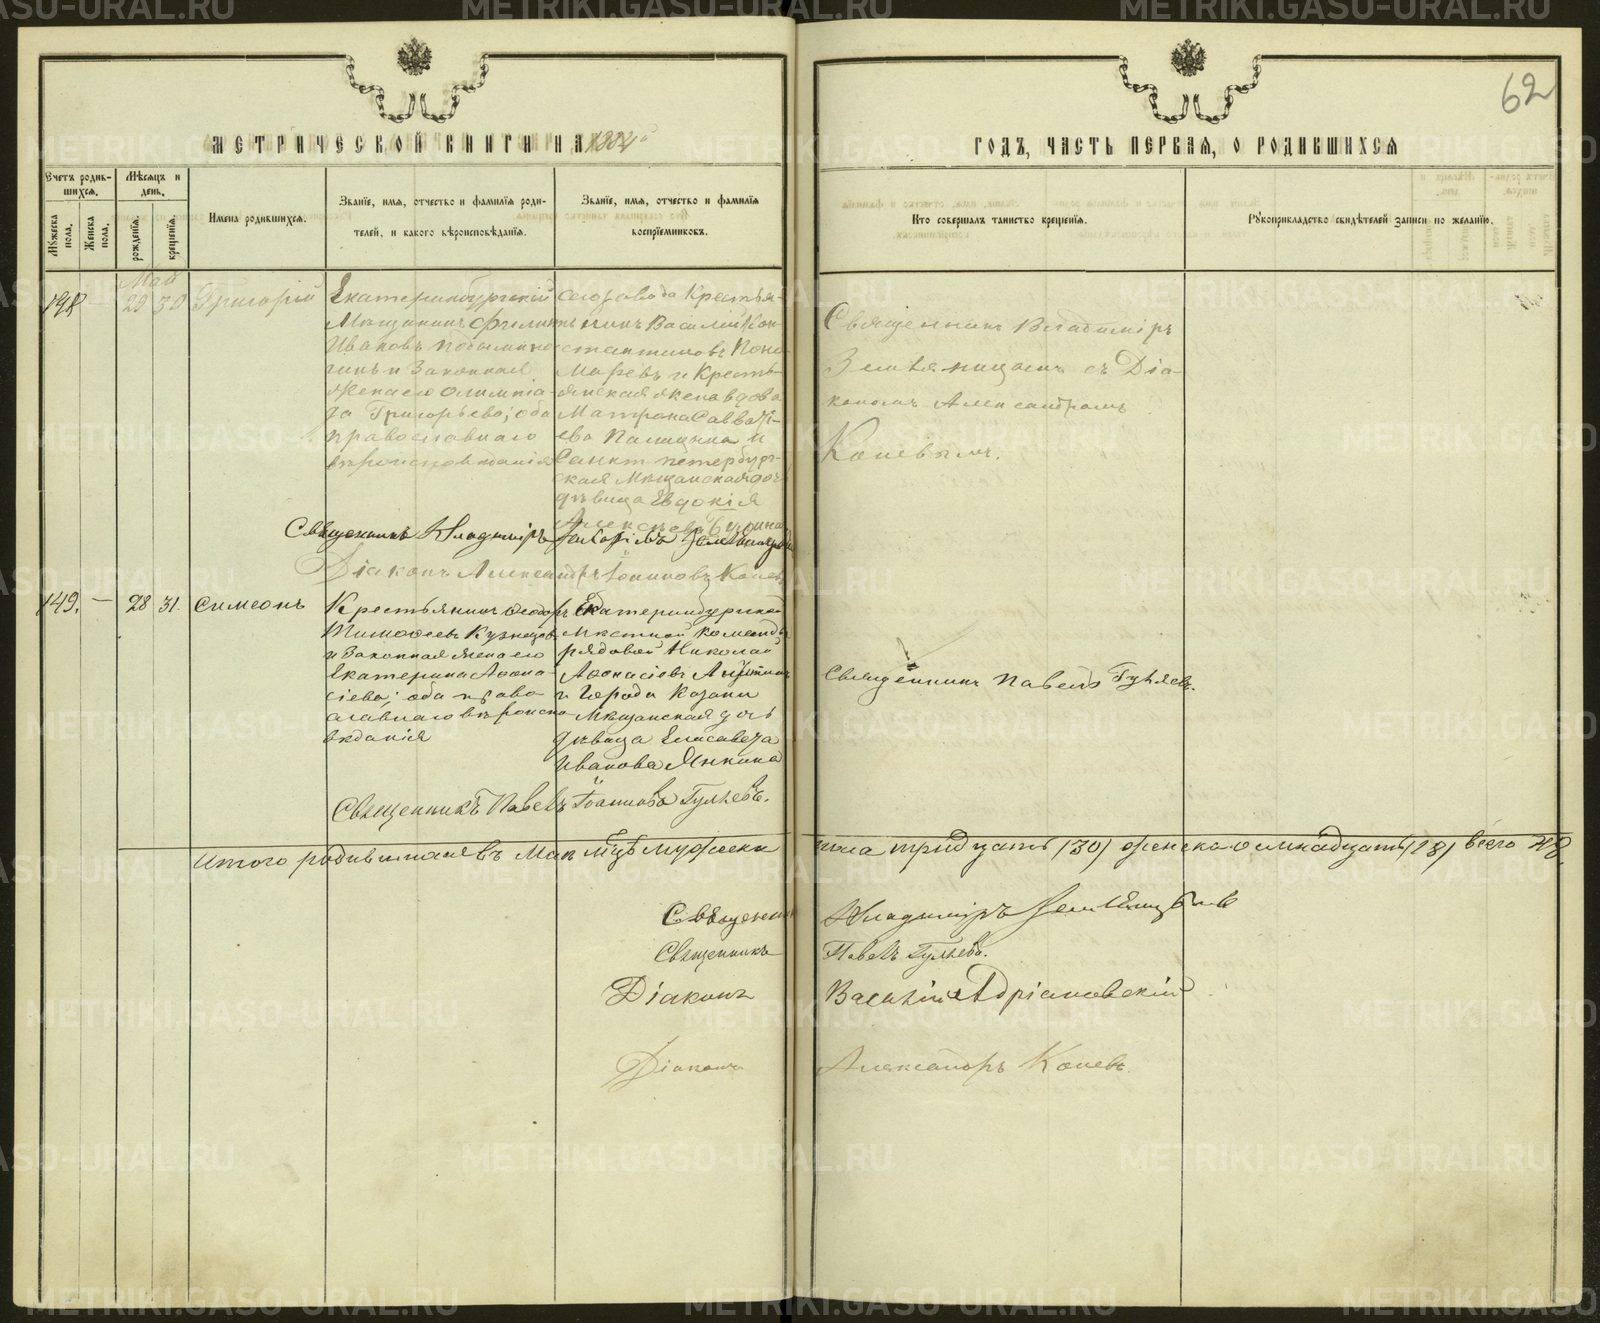 62
МЕТРИЧЕСКОЙ КНИГИ НА
ГОДЪ, ЧАСТЬ ПЕРВАЯ, О РОДИВШИХСЯ
Счетъ родив-
шихся.
Мужеска пола.
Женска пола.
Мѣсяцъ и
день.
рожденія.
крещенія.
Имена родившихся.
Званіе, имя, отчество и фамилія роди-
телей, и какого вѣроисповѣданія.
Званіе, имя, отчество и фамилія
воспріемниковъ.
Кто совершалъ таинство крещенія.
Рукоприкладство свидѣтелей записи по желанію.
Май
29 30 Григорій
Екатеринбургскій
Мѣщанинъ
Ивановъ
и Законная
жена его Олимпіа-
да Григорьева; оба
православнаго
вѣроисповѣданія
Кресть-
нинъ Василій Кон-
стантиновъ Поно-
маревъ и Кресть-
янская жена вдова
Матрона Савватi-
ева и
Санкт петербург-
ская Мѣщанская доч
дѣвица Евдокія
Священникъ Владиміръ
съ Діа-
кономъ Александромъ
Коневымъ.
Священникъ Владиміръ
Діаконъ Александръ Коневъ
149. — 28 31. Симеонъ
Крестьянинъ Ѳеодоръ
Тимоѳеевъ Кузнецовъ
и Законная жена его
Екатерина Аѳона-
сіева; оба право
славнаго вѣроиспо
вѣданія
Екатеринбургской
мѣстной команды
рядовой Николай
Аѳонасіевъ
и Города Казани
Мѣщанская дочь
дѣвица Елисавета
Иванова Янкина
Священникъ Павелъ Гуляевъ.
Священникъ Павелъ Іоанновъ Гуляевъ.
Итого родившихся въ Маѣ Мцѣ мужеска пола тридцать (30) женска осмнадцать (18) всего 48.
Священникъ Владиміръ
Священникъ Павелъ Гуляевъ.
Діаконъ Василій Адріановскій
Діаконъ Александръ Коневъ.
METRIKI.GASO-URAL.RU